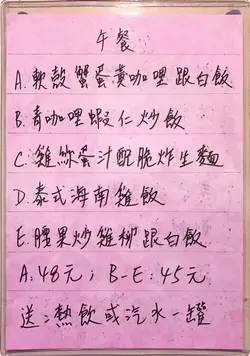 午餐
A. 軟殼蟹蛋黃咖哩跟白飯
B. 青咖哩蝦仁炒飯
C. 雞絲蛋汁配脆炸生麵
D. 泰式海南雞飯
E. 腰果炒雞柳跟白飯
A: 48元; B-E: 45元
送: 熱飲或汽水一罐